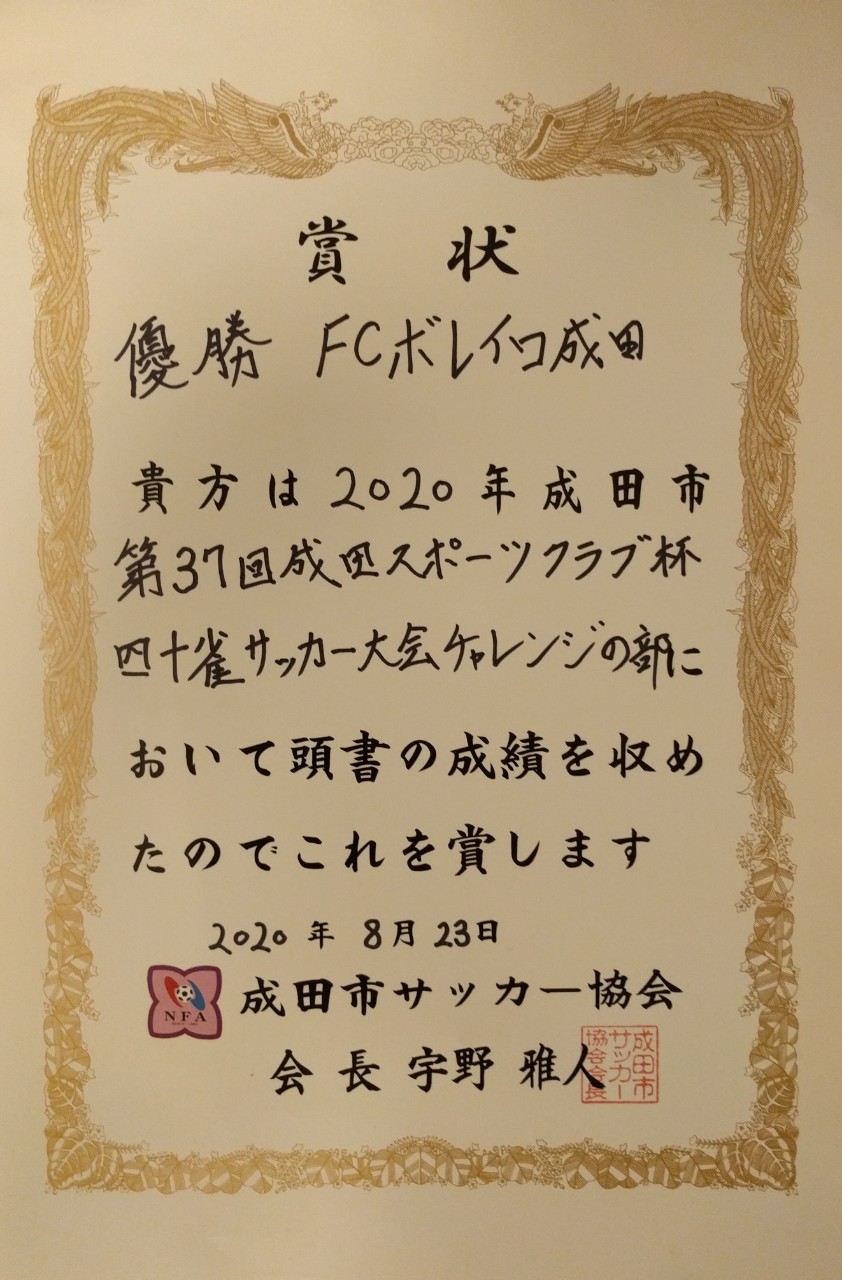 賞状
優勝 FCボレイロ成田
貴方は2020年成田市
第37回成田スポーツクラブ杯
四十雀サッカー大会チャレンジの部に
おいて頭書の成績を収め
たのでこれを賞します
2020年8月23日
NFA
成田市サッカー協会
会長 宇野 雅人
成田市サッカー協会会長